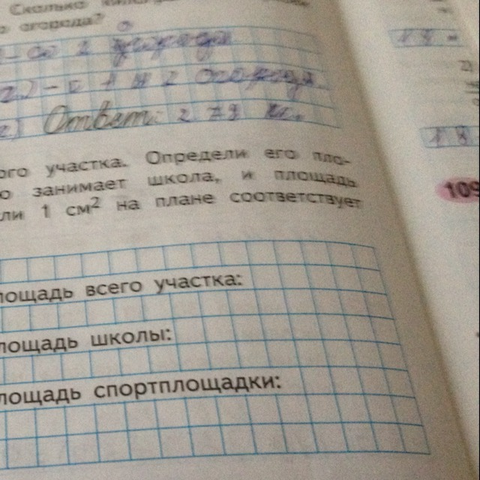 Сколько
огорода?
2 огорода
2) - с 1 и 2 огорода.
г) Ответ: 279 кг.
ого участка. Определи его пло-
о занимает школа, и площадь
ли 1 см² на плане соответствует
лощадь всего участка:
лощадь школы:
лощадь спортплощадки:
18
2)
18
109